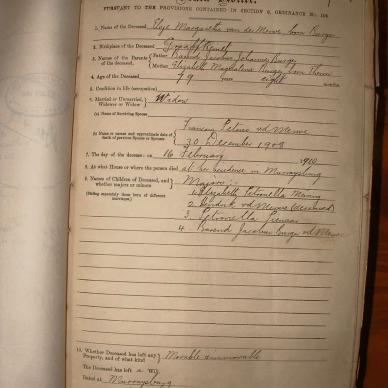 PURSUANT TO THE PROVISIONS CONTAINED IN SECTION 9, ORDINANCE No. 104
1. Name of the Deceased Elsje Margaretha van der Merwe born Burger
2. Birthplace of the Deceased Graaff Reinet
3. Names of the Parents of the deceased. Father Barend Jacobus Johannes Burger
Mother Elizabeth Magdalena Burger born
4. Age of the Deceased 79 years eight months
5. Condition in life (occupation)
6. Married or Unmarried, Widower or Widow Widow
(a) Name of Surviving Spouse
(b) Name or names and approximate date of death of previous Spouse or Spouses Francois Petrus vd Merwe
30 December 1908
7. The day of the decease: on 16 February 1910
8. At what House or where the person died at her residence in Murraysburg
9. Names of Children of Deceased, and whether majors or minors Majors:
(Stating separately those born of different marriages) 1. Elizabeth Petronella
2. Hendrik vd Merwe (deceased)
3. Petronella Pienaar
4. Barend Jacobus Burger vd Merwe
10. Whether Deceased has left any Property, and of what kind Movable & immovable
The Deceased has left a Will
Dated at Murraysburg